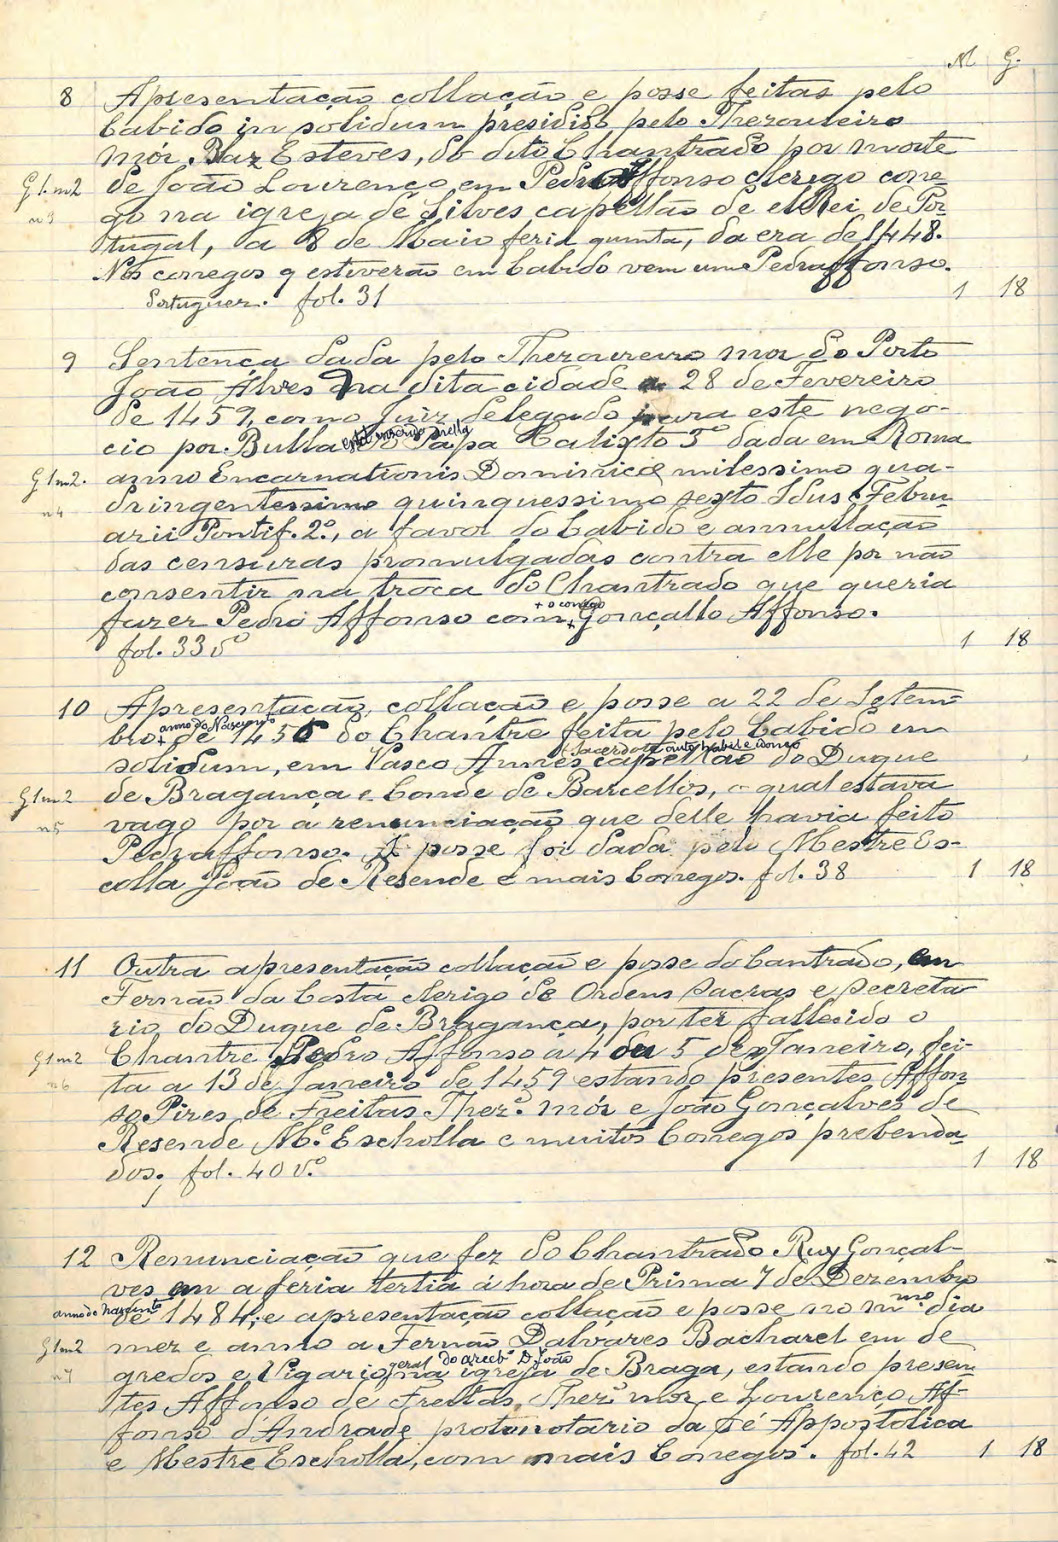 M G.
8 Apresentação collação e posse feitas pelo
Cabido in solidum presidido pelo Thezoureiro
mór Braz Esteves, do dito Chantrado por morte
G 1. m2 de João Lourenço em Pedro Affonso clerigo cone
n3 go na igreja de Silves capellão de el Rei de Por
tugal, a 8 de Maio feria quinta, da era de 1448.
Nos conegos q estiverão em Cabido vem um Pedraffonso.
Portuguez. fol. 31 1 18
9 Sentença dada pelo Thezoureiro mor do Porto
João Alves na dita cidade a 28 de Fevereiro
de 1457, como Juiz delegado para este nego-
está inserida nella
cio por Bulla do Papa Calixto 3º dada em Roma
G 1 m2. anno Encarnationis Dominice milessimo qua-
n4 dringentessimo quinquessimo sexto Idus Febru
arii Pontif. 2º., a favor do Cabido e annullação
das censuras promulgadas contra elle por não
consentir na troca do Chantrado que queria
+ o conego
fazer Pedro Affonso com + Gonçallo Affonso.
fol. 33 vº 1 18
10 Apresentação, collação e posse a 22 de Setem-
anno do Nascimto
bro + de 1456 do Chantre feita pelo Cabido in
+ Sacerdote outo habil e idoneo
solidum, em Vasco Annes capellão do Duque
G 1 m2 de Bragança e Conde de Barcellos, o qual estava
n5 vago por a renunciação que delle havia feito
Pedraffonso. A posse foi dada pelo Mestre Es-
colla João de Resende e mais Conegos. fol. 38 1 18
11 Outra apresentação collação e posse do Cantrado, em
Fernão da Costa clerigo de Ordens sacras e secreta
rio do Duque de Bragança, por ter fallecido o
G 1 m2 Chantre Pedro Affonso a 4 ou 5 de Janeiro, fei-
n6 ta a 13 de Janeiro de 1459 estando presentes Affon
so Pires de Freitas Thezº. mór e João Gonçalves de
Resende Mº. Escholla e muitos Conegos prebenda
dos; fol. 40 vº. 1 18
12 Renunciação que fez do Chantrado Ruy Gonçal-
ves em a feria tertia á hora de Prima 7 de Dezembro
anno do nascimto de 1484; e apresentação collação e posse no mmo dia
G 1 m2 mez e anno a Fernão Dalvares Bacharel em de
geral do arceb.º D. João
n7 gredos e Vigario na igreja de Braga, estando presen
tes Affonso de Freitas, Thezº mor e Lourenço Af-
fonso d'Andrade protonotario da Sé Appostolica
e Mestre Escholla, com mais Conegos. fol. 42 1 18